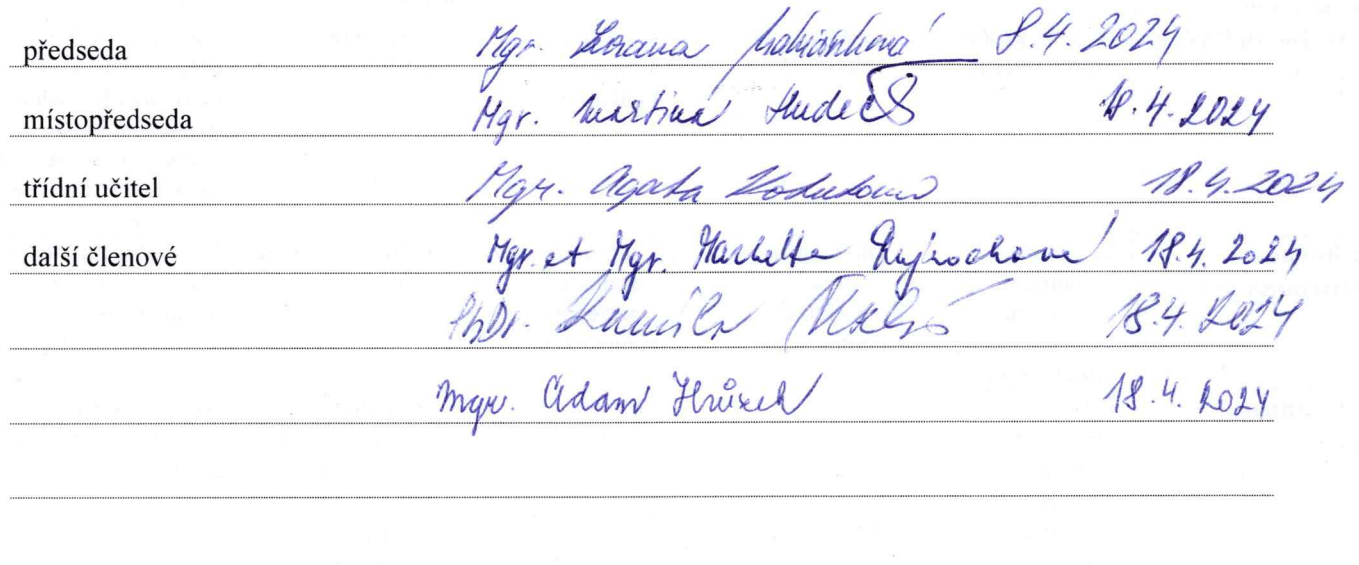 předseda Mgr. Zorana 8.4.2024
místopředseda Mgr. Martina 18.4.2024
třídní učitel Mgr. Agata 18.4.2024
další členové Mgr. et Mgr. Markéta 18.4.2024
PhDr. Kamila 18.4.2024
Mgr. Adam Hrůzek 18.4.2024